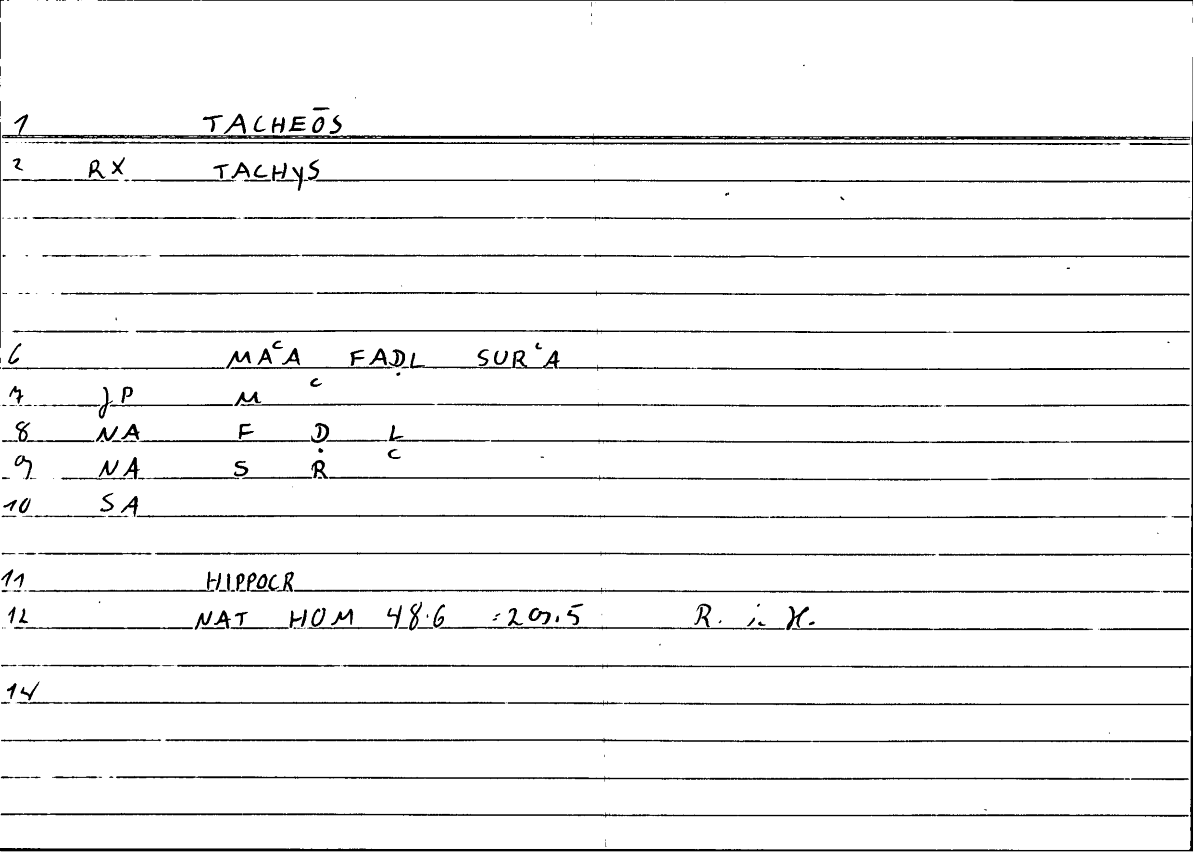 1 TACHEŌS
2 RX TACHYS
6 MAᶜA FAḌL SURᶜA
7 JP M ᶜ
8 NA F Ḍ L
9 NA S R ᶜ
10 SA
11 HIPPOCR
12 NAT HOM 48.6 :20,5 R. in H.
14